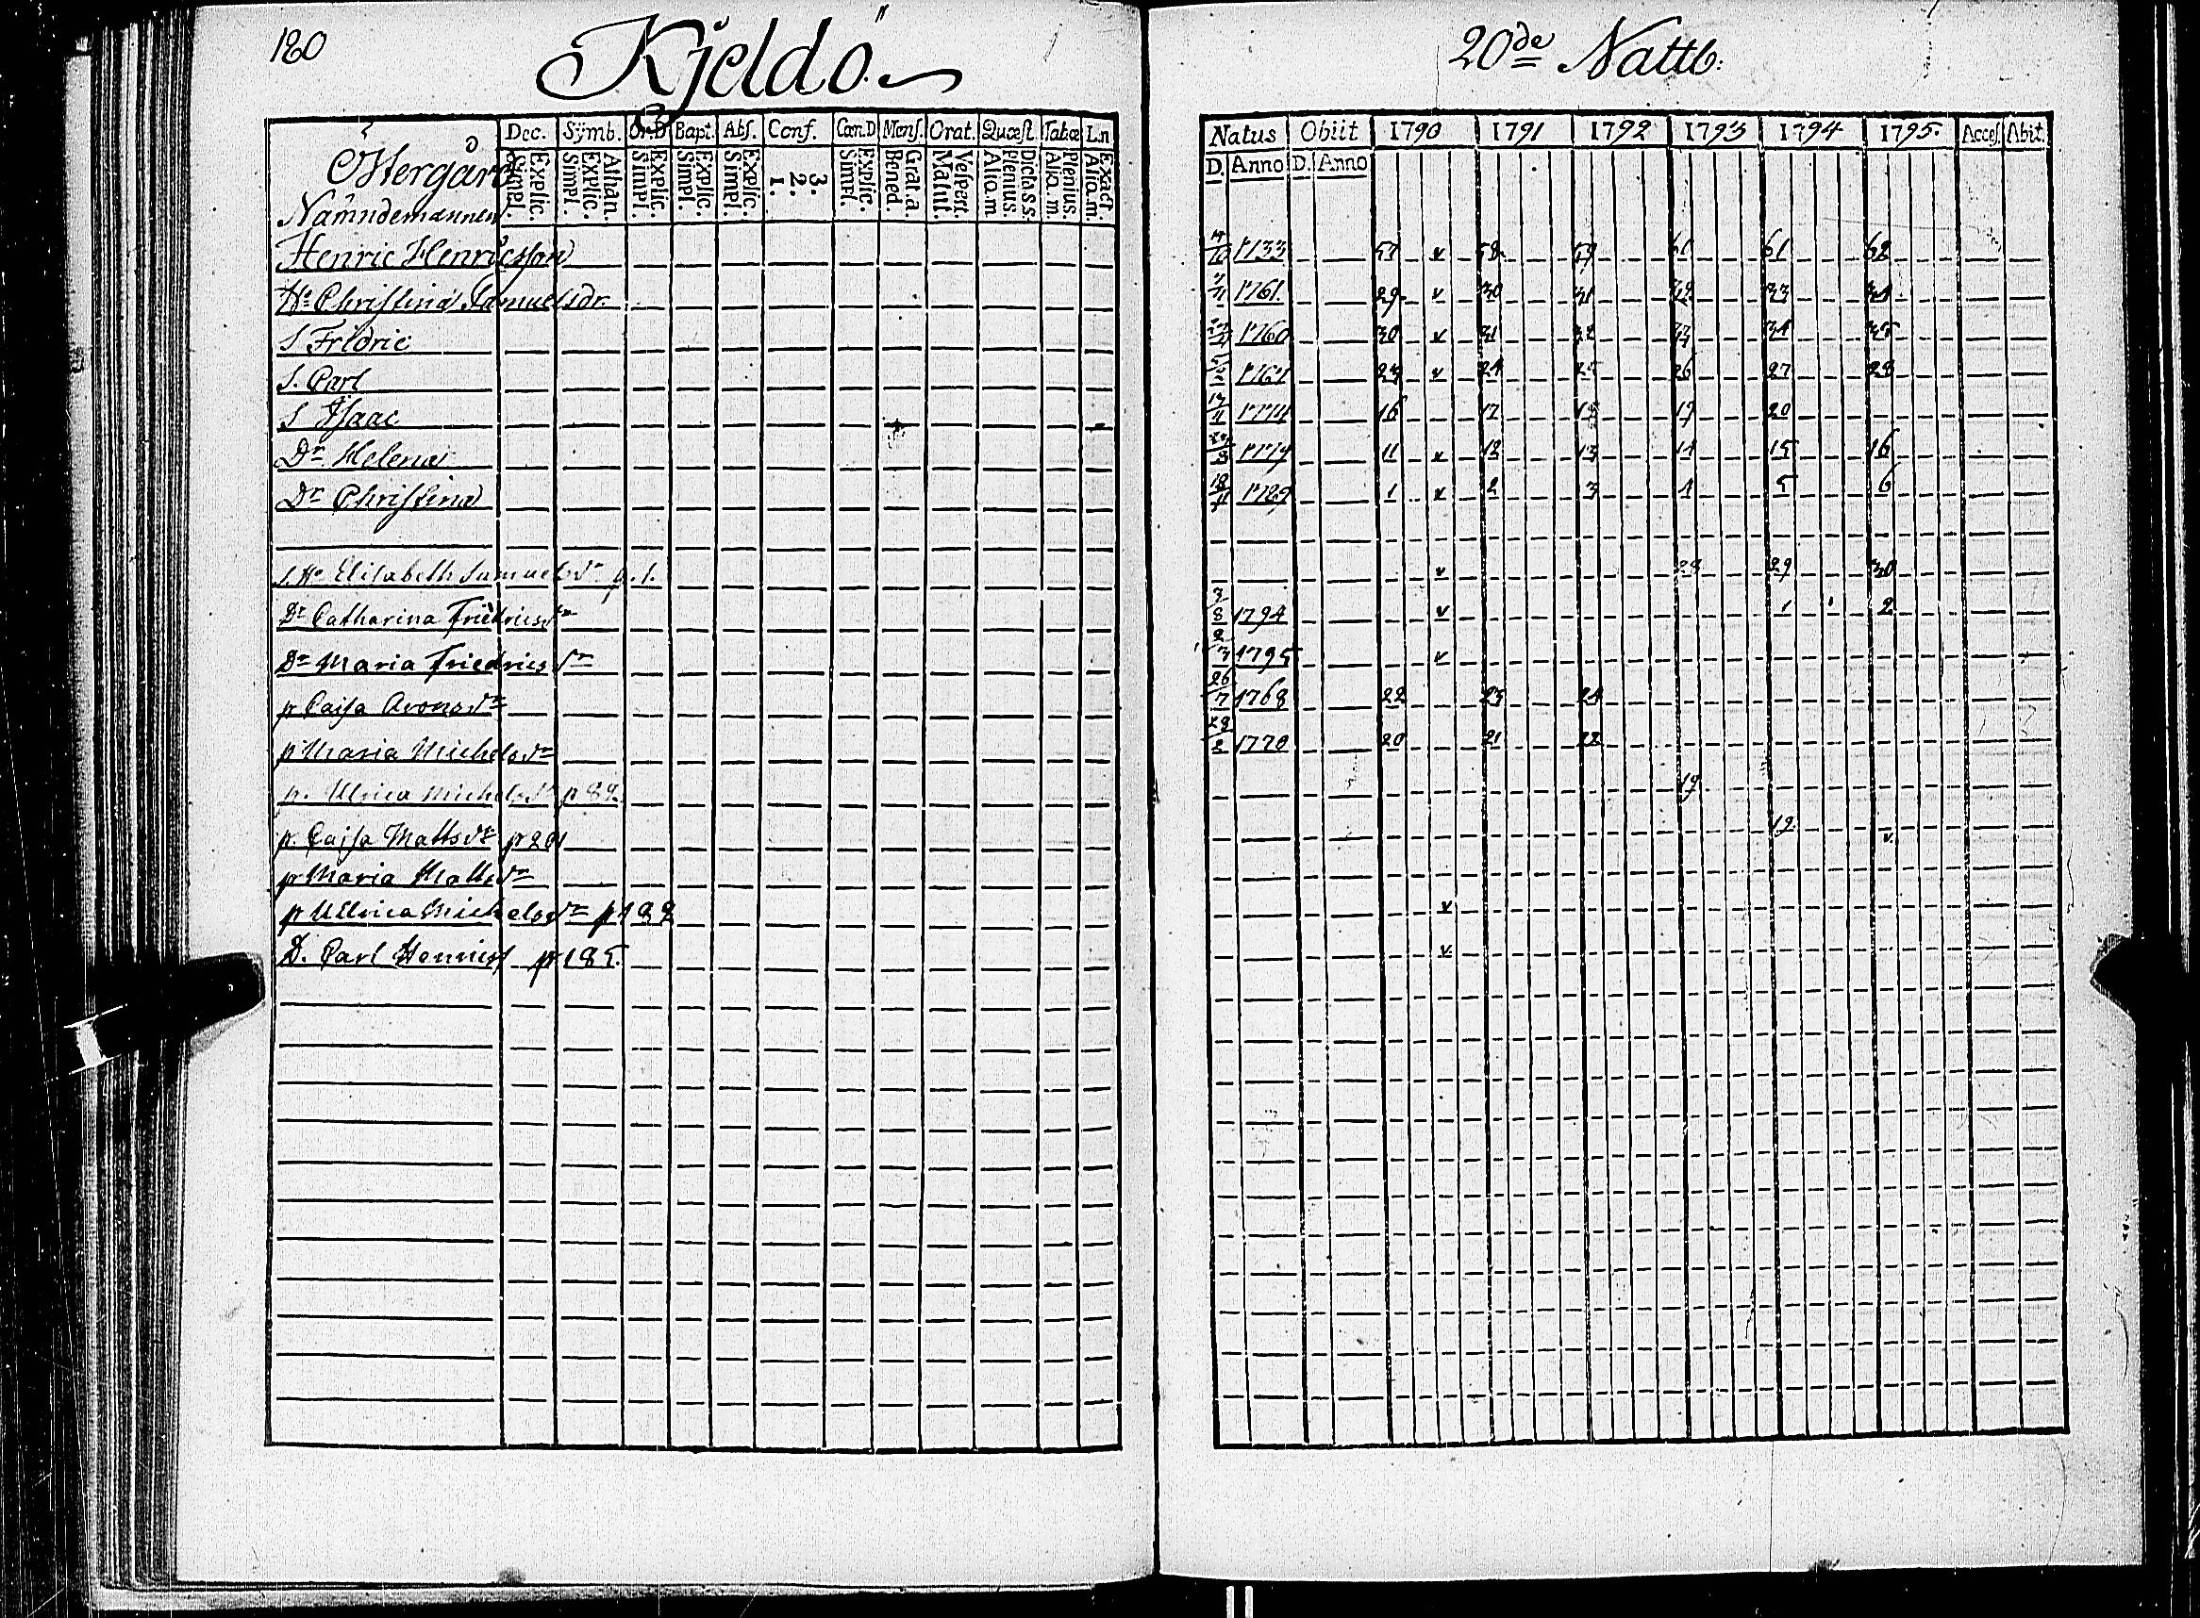 180 Kjeldö.
20de Nattl:
Östergård
Dec. Sÿmb. Or.D Bapt. Abs. Conf. Cœn.D Mens. Orat. Quæst. Tabæ L.n
Simpl. Explic. Simpl. Explic. Athan. Simpl. Explic. Simpl. Explic. Simpl. Explic. 1. 2. 3. Simpl. Explic. Bened. Grat. a. Matut. Vespert. Aliq. m. Plenius. Dicta s.s. Aliq. m. Plenius. Aliq. m. Exact.
Natus Obiit 1790 1791 1792 1793 1794 1795. Acces. Abit.
D. Anno D. Anno
Nämndemannen
Henric Henricsson 1733 57 v 58 59 61 61 62
H. Christina Samuelsdr. 1761 29 v 30 31 32 33 34
S Fridric 1760 30 v 31 32 33 34 35
S. Carl 5 1767 23 v 24 25 26 27 28
S Isaac 1774 16 17 18 19 20
Dr Helena 1779 11 v 12 13 14 15 16
Dr Christina 18 1789 1 v 2 3 4 5 6
S. H. Elisabeth Samuelsdr p. 1. v 28 29 30
Dr Catharina Friedricsdr 3/8 1794 v 1 2
Dr Maria Friedricsdr 2/3 1795 v
p Caisa Aronsdr 26/7 1768 22 23 24
p Maria Michelsdr 28/2 1770 20 21 22
p. Ulrica Michelsdr p 82 19
p. Cajsa Mattsdr p 201 19 v
p Maria Mattsdr
p Ullrica Michelsdr p 182 v
D. Carl Henricss p 185. v